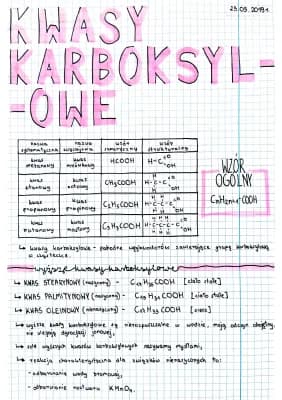 25.09.2019r.
KWASY
KARBOKSYL-
-OWE
nazwa systematyczna | nazwa zwyczajowa | wzór sumaryczny | wzór strukturalny
kwas metanowy | kwas mrówkowy | HCOOH
kwas etanowy | kwas octowy | CH₃COOH
kwas propanowy | kwas propionowy | C₂H₅COOH
kwas butanowy | kwas masłowy | C₃H₇COOH
WZÓR
OGÓLNY
CnH2n+1COOH
↳ kwasy karboksylowe - pochodne węglowodorów zawierające grupę karboksylową
w cząsteczce.
wyższe kwasy karboksylowe
↳ KWAS STEARYNOWY (nasycony) - C₁₇H₃₅COOH [ciało stałe]
↳ KWAS PALMITYNOWY (nasycony) - C₁₅H₃₁COOH [ciało stałe]
↳ KWAS OLEINOWY (nienasycony) - C₁₇H₃₃COOH [ciecz]
↳ wyższe kwasy karboksylowe są nierozpuszczalne w wodzie, mają odczyn obojętny,
nie ulegają dysocjacji jonowej.
↳ sole wyższych kwasów karboksylowych nazywamy mydłami.
↳ reakcja charakterystyczna dla związków nienasyconych to:
- odbarwianie wody bromowej,
- odbarwianie roztworu KMnO₄.